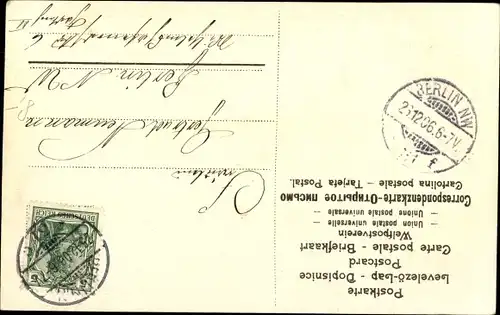 Postkarte
Levelező-Lap – Dopisnice
Postcard
Carte postale – Briefkaart
Weltpostverein
— Union postale universelle —
— Unione postale universale —
Correspondenzkarte-Открытое письмо
Cartolina postale – Tarjeta Postal.
Fräulein
Gertrud Neumann
Berlin N.W.
BERLIN NW
23.12.06.6-7V.
DEUTSCHES REICH
5